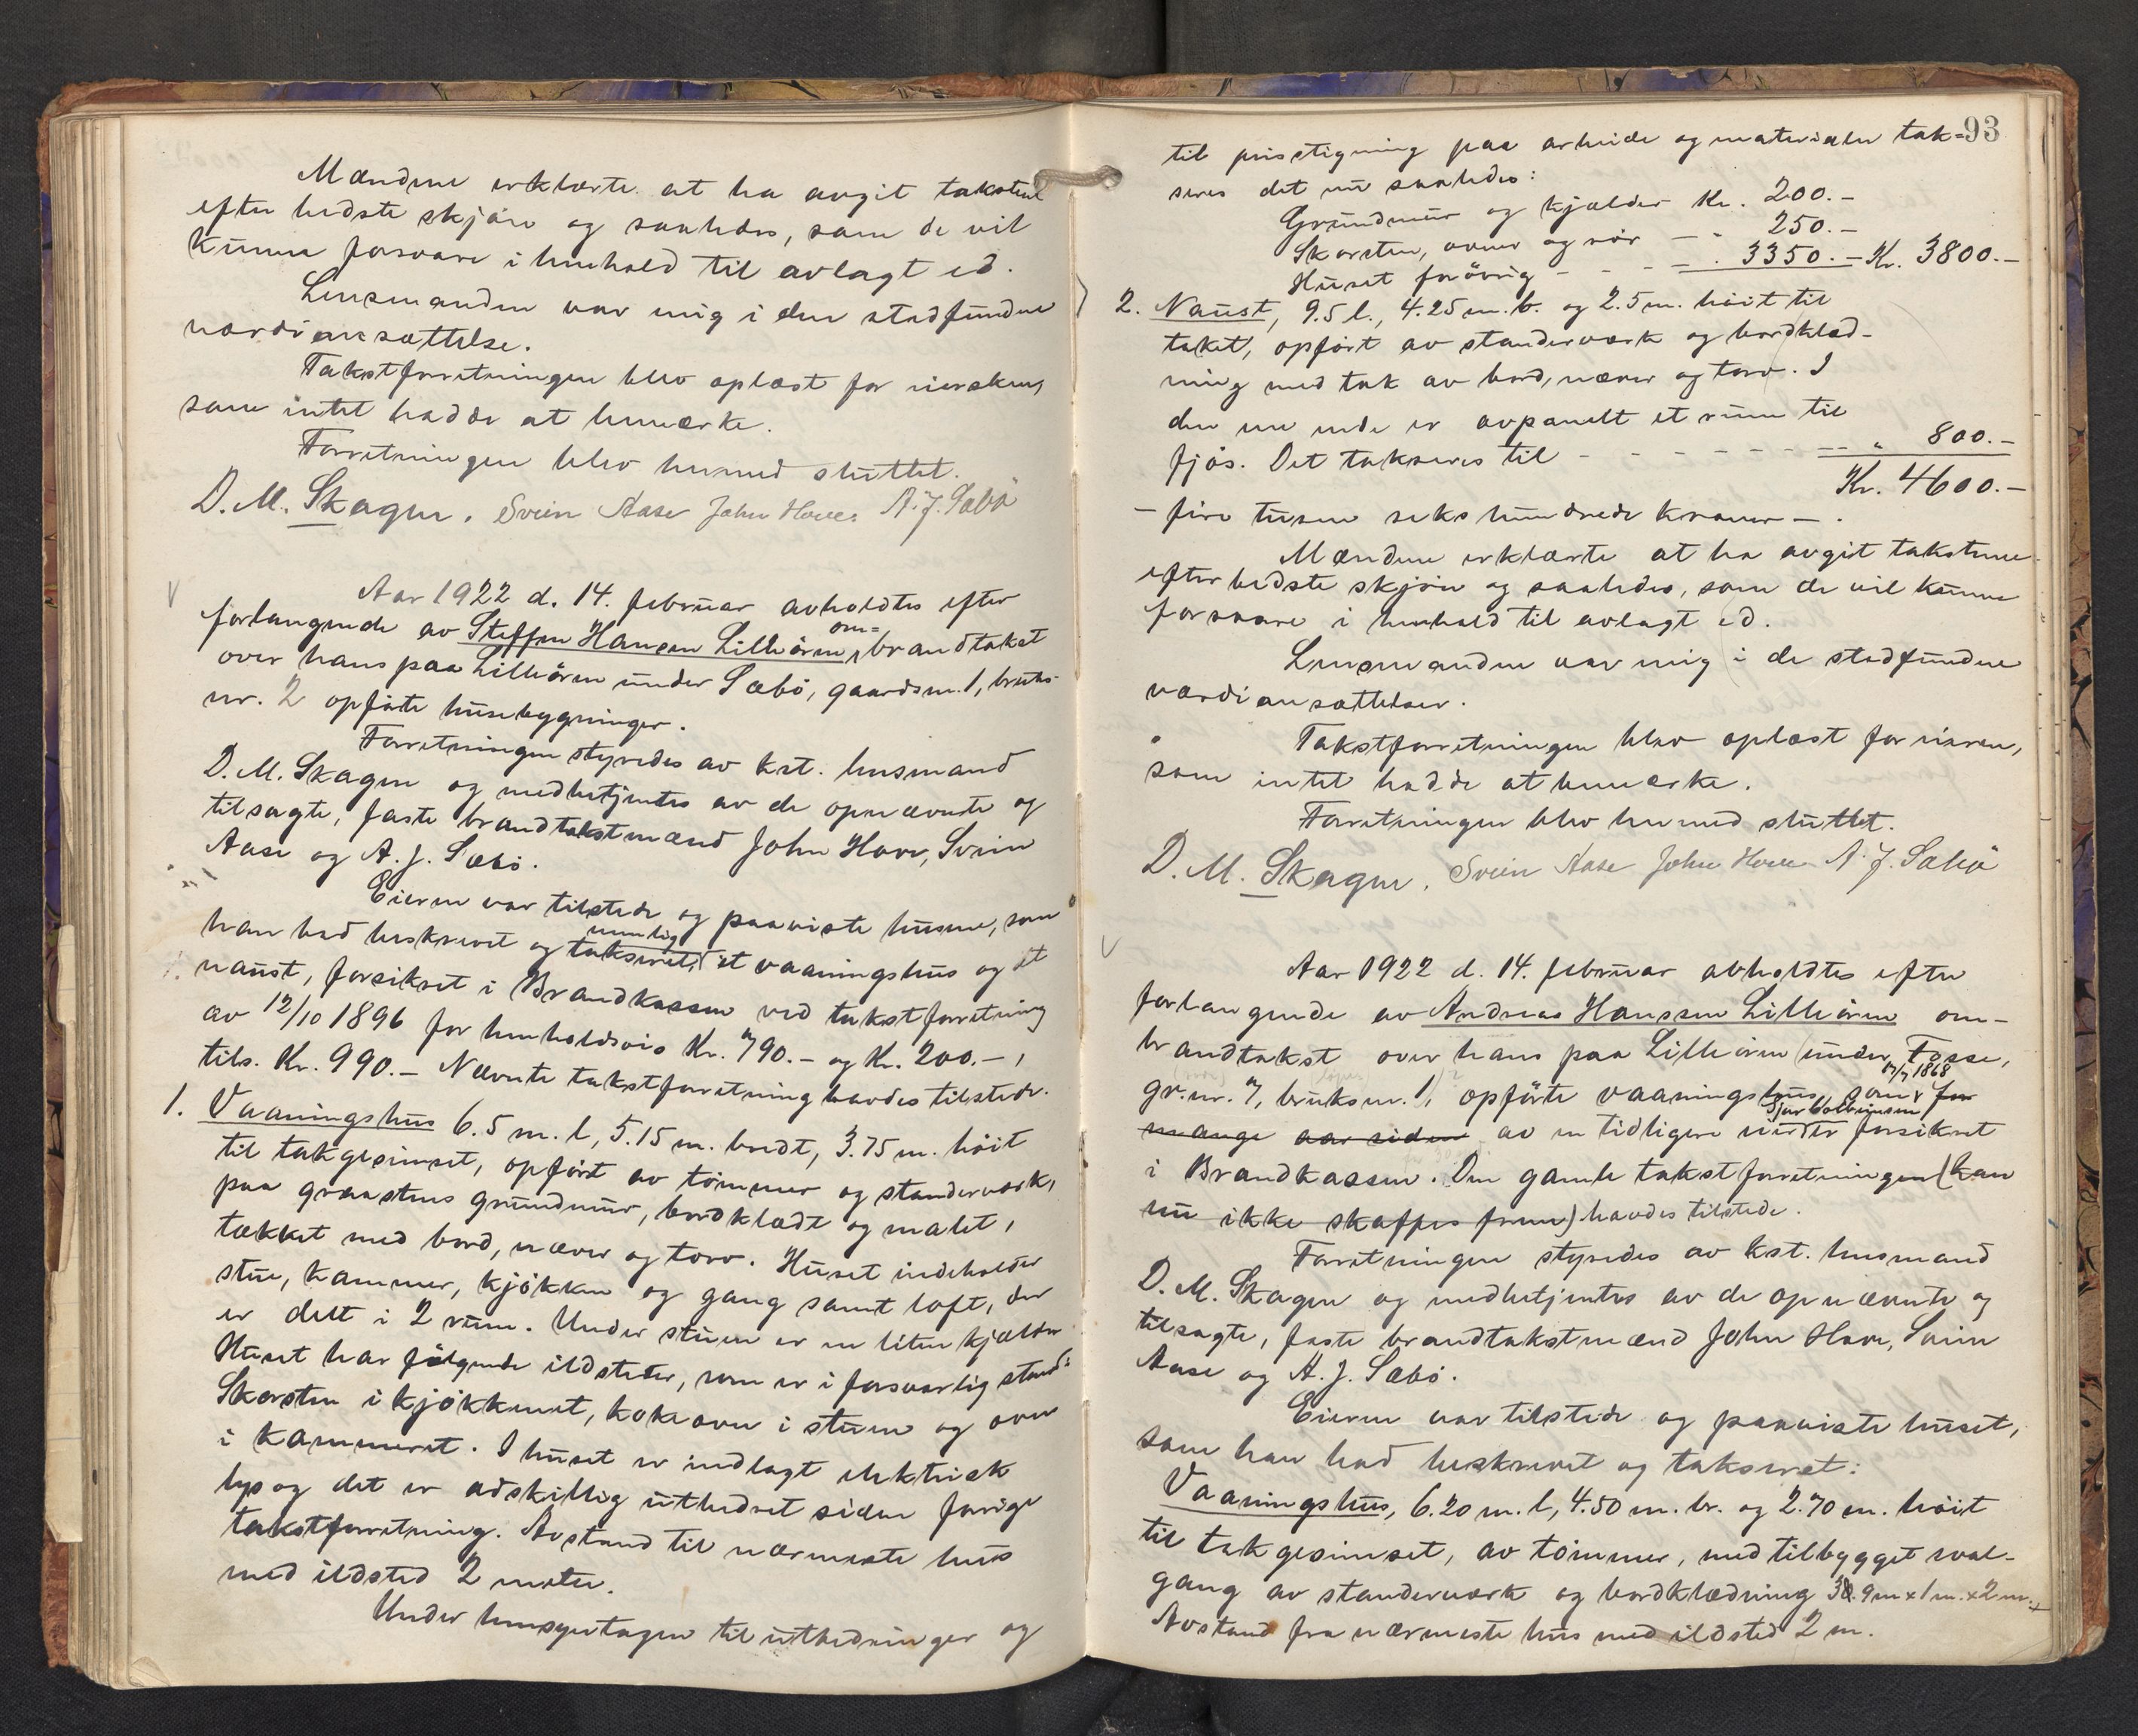 Mændene erklærte at ha avgit taksten
efter bedste skjøn og saaledes, som de vil
kunne forsvare i henhold til avlagt ed.
Lensmanden var enig i den stedfundne
værdiansættelse.
Takstforretningen blev oplæst for eierskен,
som intet hadde at bemærke.
Forretningen blev hermed sluttet.
D. M. Skagen. Svein Aase John Hove. A. J. Sæbö
Aar 1922 d. 14. februar avholdtes efter
forlangende av Steffen Hansen Lilleören om=brandtakst
over hans paa Lilleören under Sæbö, gaardsnr. 1, bruks-
nr. 2 opförte husebygninger.
Forretningen styredes av kst. lensmand
D. M. Skagen og medbetjentes av de opnævnte og
tilsagte, faste brandtakstmænd John Hove, Svein
Aase og A. J. Sæbö.
Eieren var tilstede og paaviste husene, som
han bad beskrevet og taksert, nemlig et vaaningshus og et
naust, forsikret i Brandkassen ved takstforretning
av 12/10 1896 for henholdsvis Kr. 790.- og Kr. 200.-,
tils. Kr. 990.- Nævnte takstforretning havdes tilstede.
1. Vaaningshus 6.5 m. l, 5.15 m. bredt, 3.75 m. höit
til takgesimset, opfört av tömmer og standerværk,
paa graastens grundmur, bordklædt og malet,
tækket med bord, næver og torv. Huset indeholder
stue, kammer, kjökken og gang samt loft, der
er delt i 2 rum. Under stuen er en liten kjælder
Huset har fölgende ildsteder, som er i forsvarlig stand:
Skorsten i kjökkenet, kokeovn i stuen og ovn
i kammeret. I huset er indlagt elektrisk
lys og det er adskillig utbedret siden forrige
takstforretning. Avstand til nærmeste hus
med ildsted 2 meter.
Under hensyntagen til utbedringer og
93
til prisstigning paa arbeide og materialer tak=
seres det nu saaledes:
Grundmur og kjælder Kr. 200.-
Skorsten, ovner og rör - " 250.-
Huset forövrig - - - - " 3350.- Kr. 3800.-
2. Naust, 9.5 l., 4.25 m. b. og 2.5 m. höit til
taket, opfört av standerværk og bordklæd-
ning med tak av bord, næver og torv. I
den ene ende er avpanelt et rum til
fjös. Det takseres til - - - - - - - " 800.-
Kr. 4600.-
- fire tusen sekshundrede kroner - .
Mændene erklærte at ha avgit takstene
efter bedste skjön og saaledes, som de vil kunne
forsvare i henhold til avlagt ed.
Lensmanden var enig i de stedfundne
værdiansættelser.
Takstforretningen blev oplæst for eieren,
som intet hadde at bemærke.
Forretningen blev hermed sluttet.
D. M. Skagen. Svein Aase John Hove A. J. Sæbö
Aar 1922 d. 14. februar avholdtes efter
forlangende av Andreas Hansen Lilleören om-
brandtakst over hans paa Lilleören under Fosse,
gr.nr. 7, bruksnr. 1, opförte vaaningshus, som 1868 for
mange aar siden av en tidligere eier forsikret
i Brandkassen. Den gamle takstforretningen (kan
nu ikke skaffes frem) havdes tilstede.
Forretningen styredes av kst. lensmand
D. M. Skagen og medbetjentes av de opnævnte og
tilsagte, faste brandtakstmænd John Hove, Svein
Aase og A. J. Sæbö.
Eieren var tilstede og paaviste huset,
som han bad beskrevet og taksert:
Vaaningshus, 6.20 m. l, 4.50 m. br. og 2.70 m. höit
til takgesimset, av tömmer, med tilbygget sval-
gang av standerværk og bordklædning 3.9m x 1 m. x 2 m.
Avstand fra nærmeste hus med ildsted 2 m.